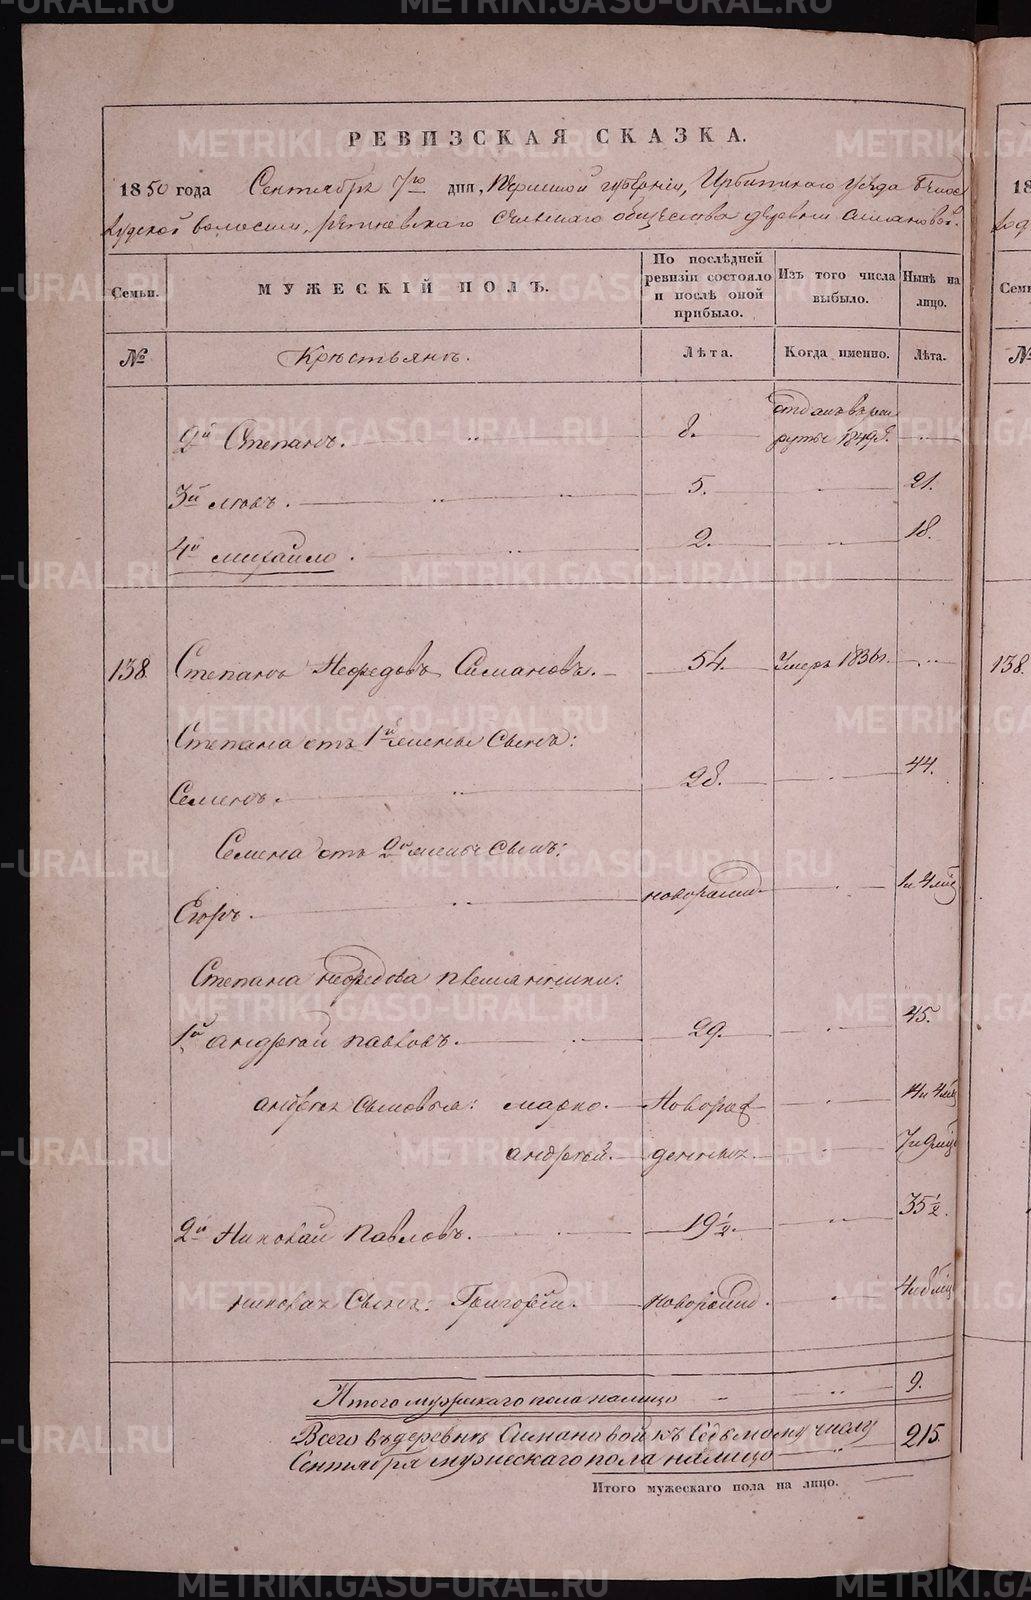 РЕВИЗСКАЯ СКАЗКА.
1850 года Сентября 7го дня, Пермской губернiи, Ирбитскаго уѣзда Бѣлос
лудской волости, сельскаго общества деревни Симановой.
Семьи.
МУЖЕСКIЙ ПОЛЪ.
По послѣдней ревизiи состояло и послѣ оной прибыло.
Изъ того числа выбыло.
Нынѣ на лицо.
№ Крестьянъ. Лѣта. Когда именно. Лѣта.
2й Степанъ. 8. отданъ въ рек
руты 1849г.
3й Левъ. 5. 21.
4й Михайло. 2. 18.
138 Степанъ Нефедовъ Симановъ. 54. Умеръ 1836г.
Степана отъ 1й жены сынъ:
Семенъ. 28. 44.
Семена отъ 2й жены сынъ:
Егоръ. новорожд. 1 и 4 мѣс
Степана Нефедова племянники:
1й Андрей Павловъ. 29. 45.
Андрея сыновья: Марко. Новорож 14 и 4 мѣс
Андрей. денные. 7 и 9 мѣс
2й Николай Павловъ. 19 1/2. 35 1/2.
Николая сынъ: Григорiй. новорожд. 4 и 6 мѣс
Итого мужескаго пола налицо 9.
Всего въ деревнѣ Симановой къ Седьмому числу 215.
Сентября мужескаго пола налицо
Итого мужескаго пола на лицо.
18
Семь
№
138.
METRIKI.GASO-URAL.RU